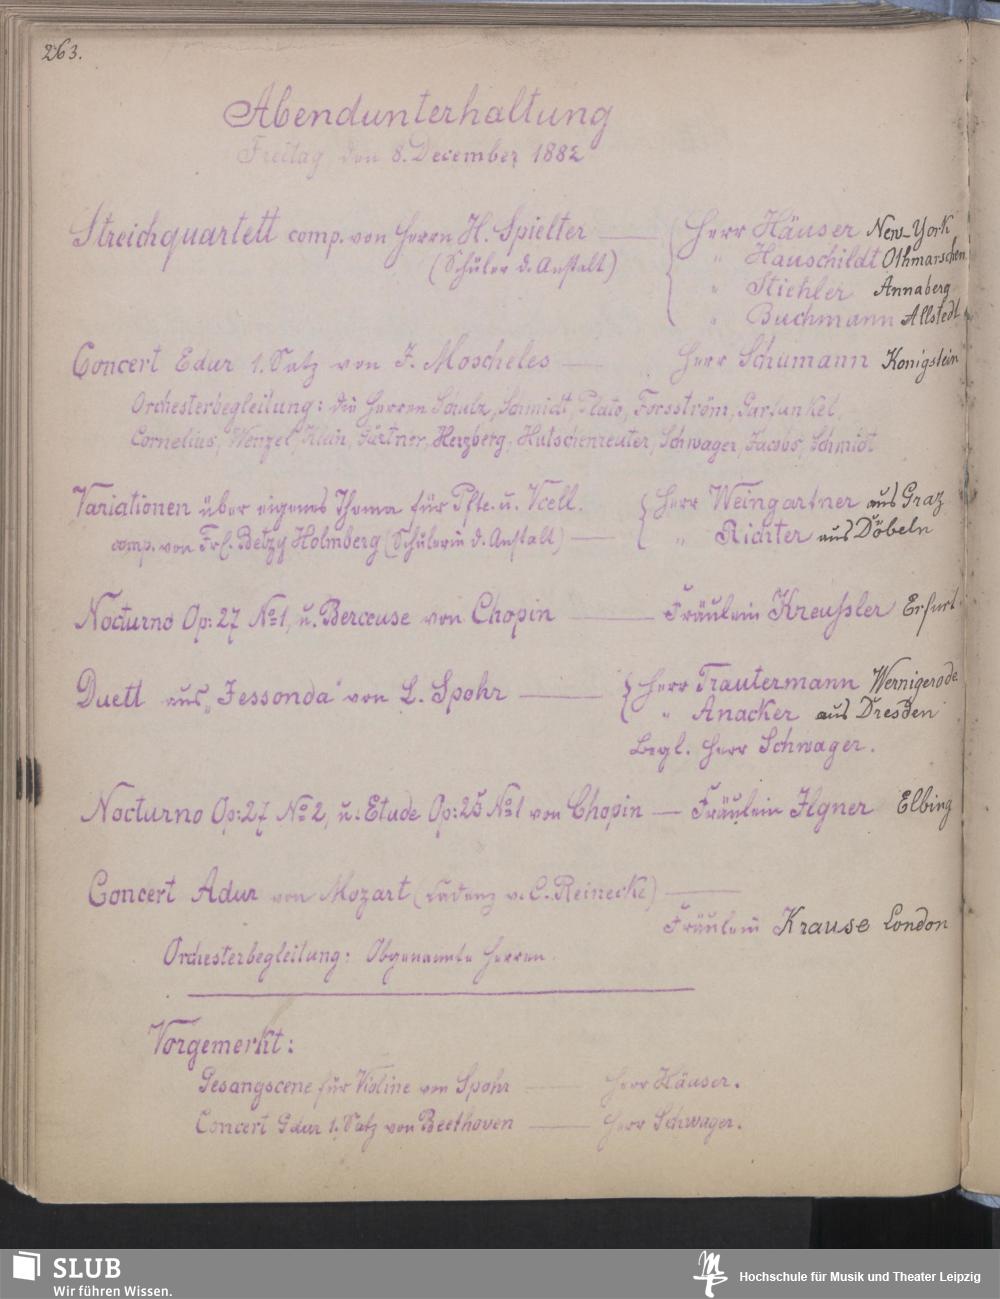 263.
Abendunterhaltung
Freitag den 8. December 1882
Streichquartett comp. von Herrn H. Spielter — Herr Häuser New-York
(Schüler d. Anstalt) " Hauschildt Othmarschen
" Stiehler Annaberg
" Buchmann Allstedt
Concert Edur 1. Satz von J. Moscheles — Herr Schumann Königstein
Orchesterbegleitung: die Herren Schulz, Schmidt, Plato, Forsström, Garfunkel,
Cornelius, Wenzel, Klein, Gärtner, Herzberg, Hutschenreuter, Schwager, Jacobs, Schmidt
Variationen über eigenes Thema für Pfte. u. Vcell. Herr Weingartner aus Graz
comp. von Frl. Betzy Holmberg (Schülerin d. Anstalt) — " Richter aus Döbeln
Nocturno Op: 27 No 1, u. Berceuse von Chopin — Fräulein Kreußler Erfurt
Duett aus „Jessonda" von L. Spohr — Herr Trautermann Wernigerode
" Anacker aus Dresden
Begl. Herr Schwager.
Nocturno Op: 27 No 2, u. Etude Op: 25 No 1 von Chopin — Fräulein Ilgner Elbing
Concert Adur von Mozart (Cadenz v. C. Reinecke) —
Fräulein Krause London
Orchesterbegleitung: Obgenannte Herren.
Vorgemerkt:
Gesangscene für Violine von Spohr — Herr Häuser.
Concert Gdur 1. Satz von Beethoven — Herr Schwager.
SLUB
Wir führen Wissen.
Hochschule für Musik und Theater Leipzig